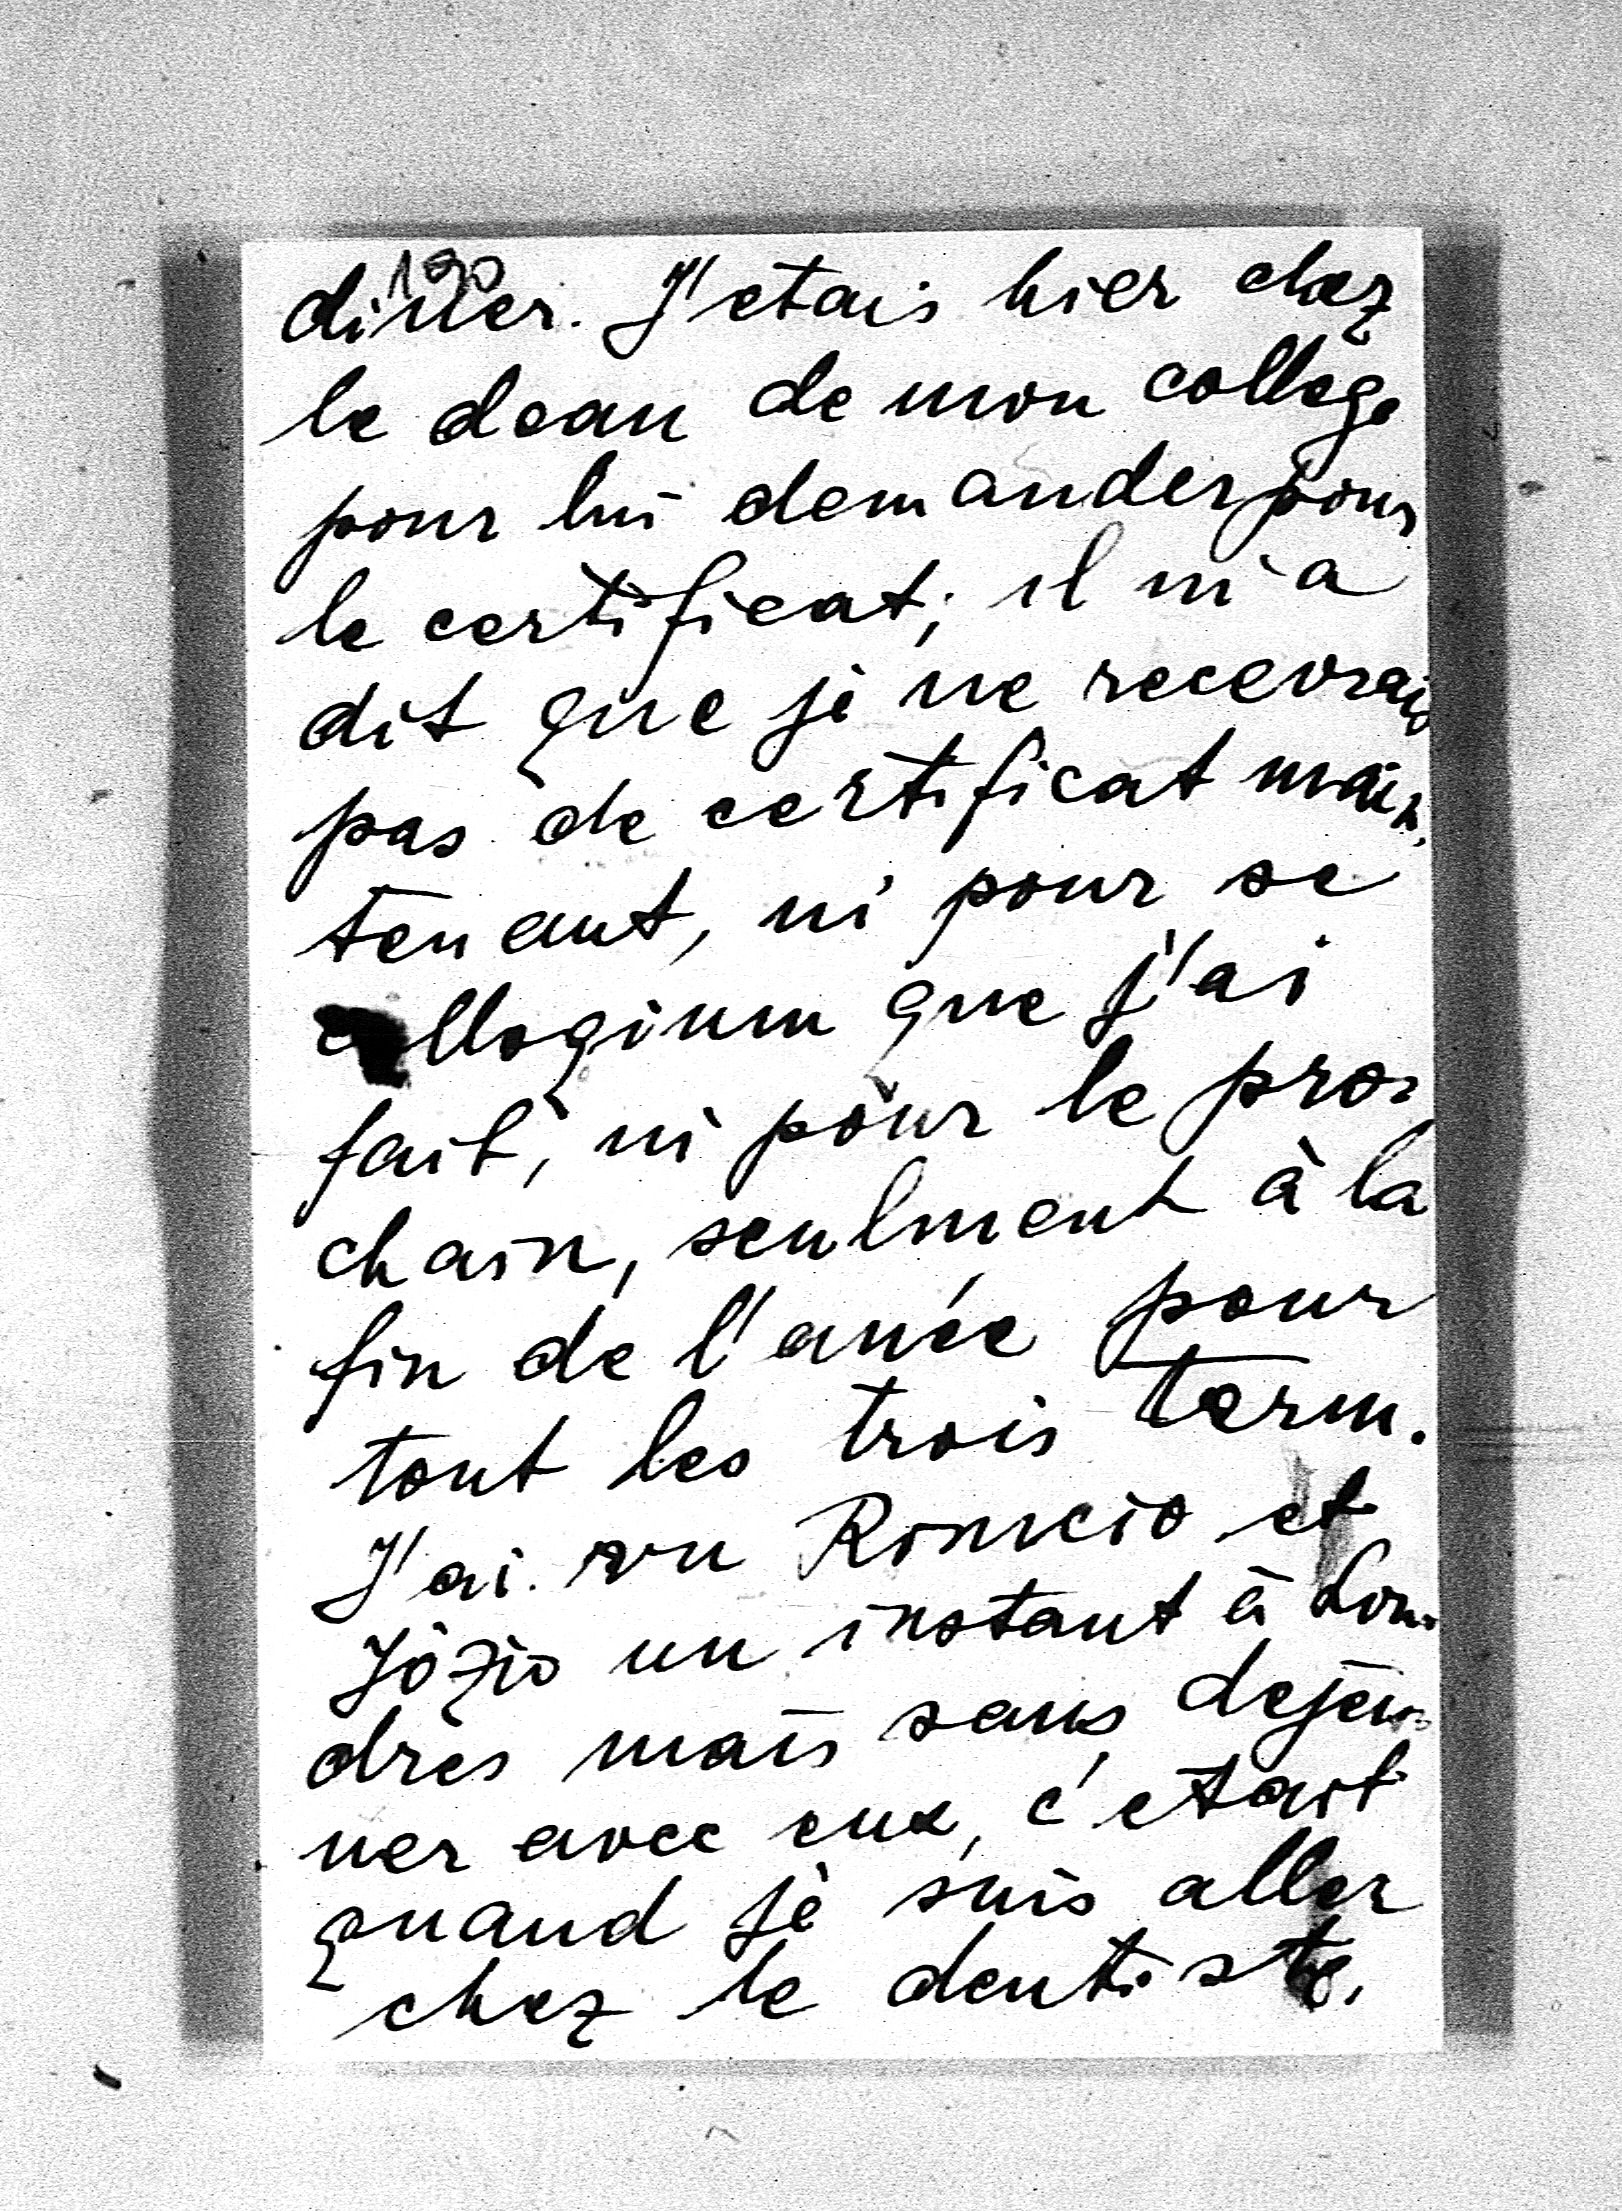 190
diner. J'etais hier chez
le dean de mon collège
pour lui demander pour
le certificat, il m'a
dit que je ne recevrais
pas de certificat main-
tenant, ni pour se
colloqium que j'ai
fait, ni pour le pro-
chain, seulment à la
fin de l'anée pour
tout les trois term.
J'ai vu Romcio et
Józio un instant à Lon-
dres mais sans dejeu-
ner avec eux, c'etait
quand je suis aller
chez le dentiste.